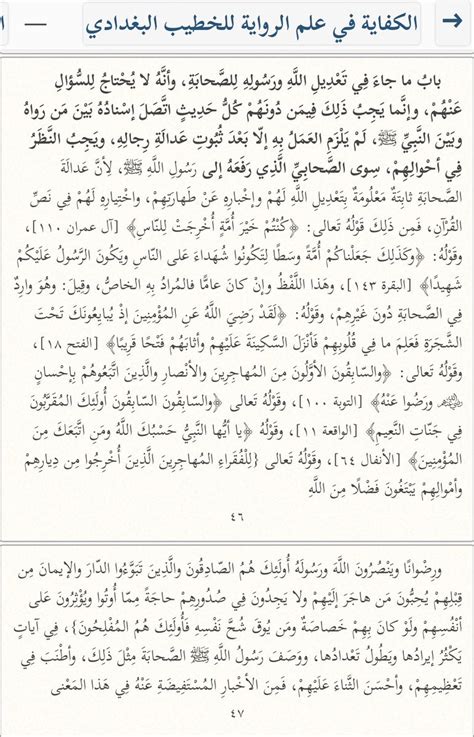 الكفاية في علم الرواية للخطيب البغدادي
بابُ ما جاءَ فِي تَعْدِيلِ اللَّهِ ورَسُولِهِ لِلصَّحابَةِ، وأنَّهُ لا يُحْتاجُ لِلسُّؤالِ
عَنْهُمْ، وإنَّما يَجِبُ ذَلِكَ فِيمَن دُونَهُمْ كُلُّ حَدِيثٍ اتَّصَلَ إسْنادُهُ بَيْنَ مَن رَواهُ
وبَيْنَ النَّبِيِّ ﷺ، لَمْ يَلْزَمِ العَمَلُ بِهِ إلّا بَعْدَ ثُبُوتِ عَدالَةِ رِجالِهِ، ويَجِبُ النَّظَرُ
فِي أحْوالِهِمْ، سِوى الصَّحابِيِّ الَّذِي رَفَعَهُ إلى رَسُولِ اللَّهِ ﷺ، لِأنَّ عَدالَةَ
الصَّحابَةِ ثابِتَةٌ مَعْلُومَةٌ بِتَعْدِيلِ اللَّهِ لَهُمْ وإخْبارِهِ عَنْ طَهارَتِهِمْ، واخْتِيارِهِ لَهُمْ فِي نَصِّ
القُرْآنِ، فَمِن ذَلِكَ قَوْلُهُ تَعالى: ﴿كُنْتُمْ خَيْرَ أُمَّةٍ أُخْرِجَتْ لِلنّاسِ﴾ [آل عمران ١١٠]،
وقَوْلُهُ: ﴿وكَذَلِكَ جَعَلْناكُمْ أُمَّةً وسَطًا لِتَكُونُوا شُهَداءَ عَلى النّاسِ ويَكُونَ الرَّسُولُ عَلَيْكُمْ
شَهِيدًا﴾ [البقرة ١٤٣]، وهَذا اللَّفْظُ وإنْ كانَ عامًّا فالمُرادُ بِهِ الخاصُّ، وقِيلَ: وهُوَ وارِدٌ
فِي الصَّحابَةِ دُونَ غَيْرِهِمْ، وقَوْلُهُ: ﴿لَقَدْ رَضِيَ اللَّهُ عَنِ المُؤْمِنِينَ إذْ يُبايِعُونَكَ تَحْتَ
الشَّجَرَةِ فَعَلِمَ ما فِي قُلُوبِهِمْ فَأنْزَلَ السَّكِينَةَ عَلَيْهِمْ وأثابَهُمْ فَتْحًا قَرِيبًا﴾ [الفتح ١٨]،
وقَوْلُهُ تَعالى: ﴿والسّابِقُونَ الأوَّلُونَ مِنَ المُهاجِرِينَ والأنْصارِ والَّذِينَ اتَّبَعُوهُمْ بِإحْسانٍ
﵃ ورَضُوا عَنْهُ﴾ [التوبة ١٠٠]، وقَوْلُهُ تَعالى ﴿والسّابِقُونَ السّابِقُونَ أُولَئِكَ المُقَرَّبُونَ
فِي جَنّاتِ النَّعِيمِ﴾ [الواقعة ١١]، وقَوْلُهُ ﴿يا أيُّها النَّبِيُّ حَسْبُكَ اللَّهُ ومَنِ اتَّبَعَكَ مِنَ
المُؤْمِنِينَ﴾ [الأنفال ٦٤]، وقَوْلُهُ تَعالى {لِلْفُقَراءِ المُهاجِرِينَ الَّذِينَ أُخْرِجُوا مِن دِيارِهِمْ
وأمْوالِهِمْ يَبْتَغُونَ فَضْلًا مِنَ اللَّهِ
٤٦
ورِضْوانًا ويَنْصُرُونَ اللَّهَ ورَسُولَهُ أُولَئِكَ هُمُ الصّادِقُونَ والَّذِينَ تَبَوَّءُوا الدّارَ والإيمانَ مِن
قِبْلِهِمْ يُحِبُّونَ مَن هاجَرَ إلَيْهِمْ ولا يَجِدُونَ فِي صُدُورِهِمْ حاجَةً مِمّا أُوتُوا ويُؤْثِرُونَ عَلى
أنْفُسِهِمْ ولَوْ كانَ بِهِمْ خَصاصَةٌ ومَن يُوقَ شُحَّ نَفْسِهِ فَأُولَئِكَ هُمُ المُفْلِحُونَ}، فِي آياتٍ
يَكْثُرُ إيرادُها ويَطُولُ تَعْدادُها، ووَصَفَ رَسُولُ اللَّهِ ﷺ الصَّحابَةَ مِثْلَ ذَلِكَ، وأطْنَبَ فِي
تَعْظِيمِهِمْ، وأحْسَنَ الثَّناءَ عَلَيْهِمْ، فَمِنَ الأخْبارِ المُسْتَفِيضَةِ عَنْهُ فِي هَذا المَعْنى
٤٧